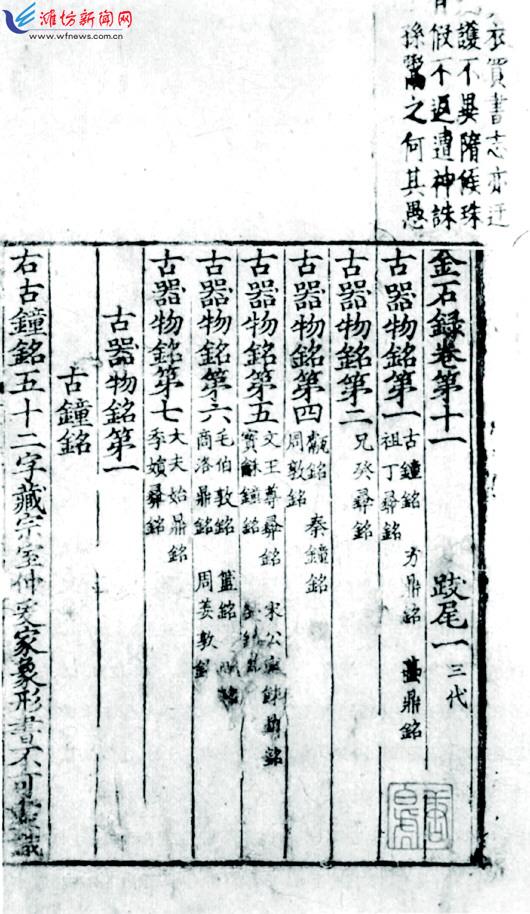 潍坊新闻网
www.wfnews.com.cn
衣買書志亦迂
護不異隋侯珠
假不返遭神誅
孫鬻之何其愚
金石録卷第十一 跋尾一 三代
古器物銘第一
古鐘銘 方鼎銘 鼎銘
祖丁彝銘
古器物銘第二
兄癸彝銘
古器物銘第四
甗銘 秦鐘銘
周敦銘
古器物銘第五
文王尊彝銘 宋公鼎銘
寶龢鐘銘
古器物銘第六
毛伯敦銘 簠銘
商洛鼎銘 周姜敦銘
古器物銘第七
大夫始鼎銘
季嬪彝銘
古器物銘第一
古鐘銘
右古鐘銘五十二字藏宗室仲爰家象形書不可盡識